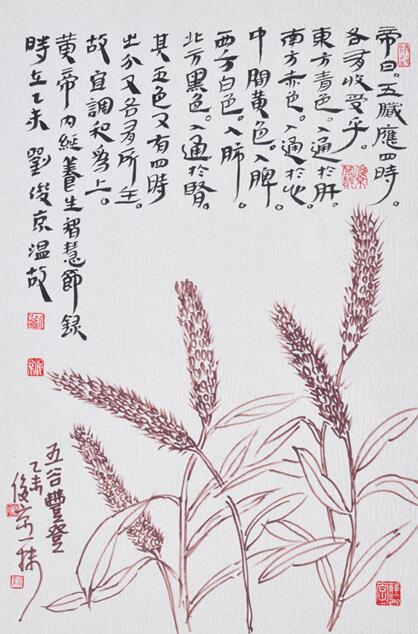 帝曰。五臟應四時。
各有收受乎。
東方青色。入通於肝。
南方赤色。入通於心。
中間黃色。入脾。
西方白色。入肺。
北方黑色。入通於腎。
其五色又有四時
又各有所主。
故宜調和為上。
黃帝內經養生智慧節錄
時在乙未 劉俊京溫故
五谷豐登
乙未
俊京